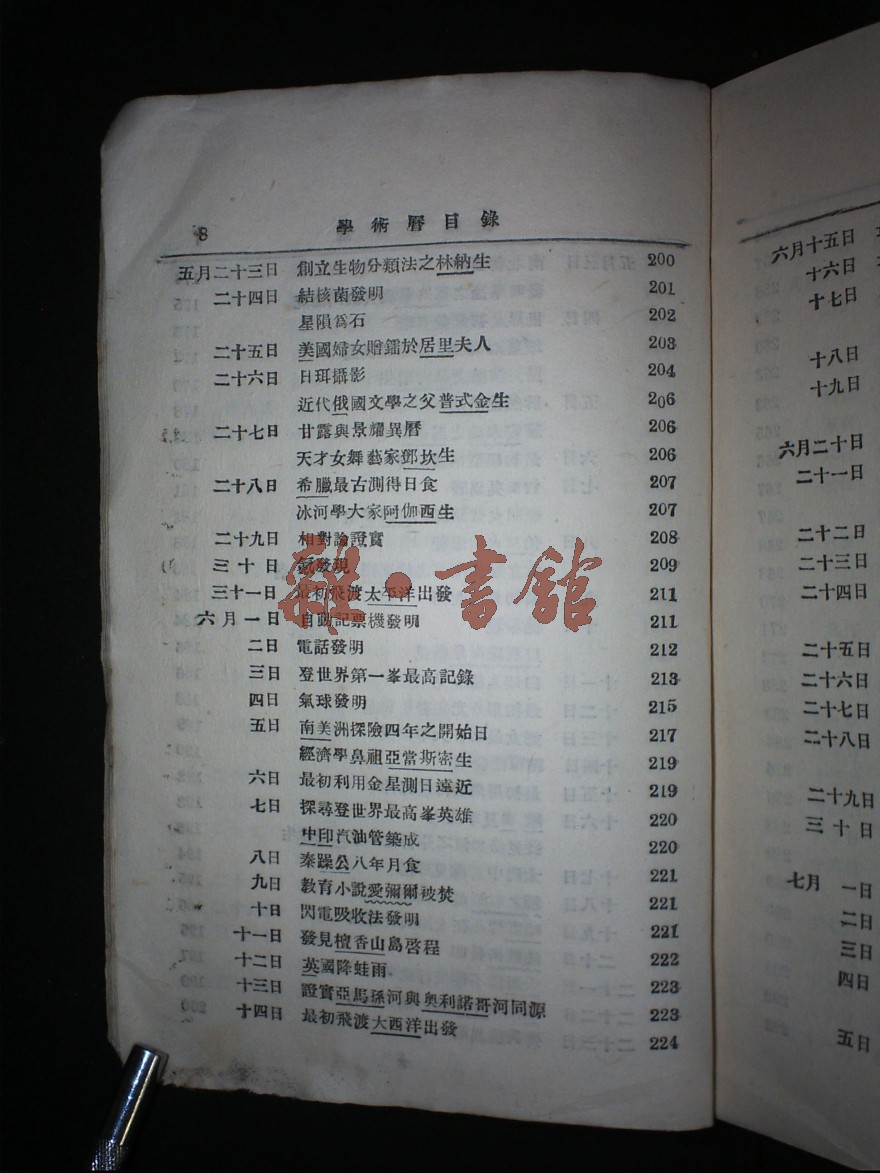 8 學術曆目錄
五月二十三日 創立生物分類法之林納生 200
二十四日 結核菌發明 201
星隕為石 202
二十五日 美國婦女贈鐳於居里夫人 203
二十六日 日珥攝影 204
近代俄國文學之父普式金生 206
二十七日 甘露與景耀異曆 206
天才女舞藝家鄧坎生 206
二十八日 希臘最古測得日食 207
冰河學大家阿伽西生 207
二十九日 相對論證實 208
三十日 氦發現 209
三十一日 最初飛渡太平洋出發 211
六月一日 自動記票機發明 211
二日 電話發明 212
三日 登世界第一峯最高記錄 213
四日 氣球發明 215
五日 南美洲探險四年之開始日 217
經濟學鼻祖亞當斯密生 219
六日 最初利用金星測日遠近 219
七日 探尋登世界最高峯英雄 220
中印汽油管築成 220
八日 秦躁公八年月食 221
九日 教育小說愛彌爾被焚 221
十日 閃電吸收法發明 221
十一日 發見檀香山島啓程 222
十二日 英國降蛙雨 223
十三日 證實亞馬孫河與奧利諾哥河同源 223
十四日 最初飛渡大西洋出發 224
雜·書館
六月十五日
十六日
十七日
十八日
十九日
六月二十日
二十一日
二十二日
二十三日
二十四日
二十五日
二十六日
二十七日
二十八日
二十九日
三十日
七月 一日
二日
三日
四日
五日